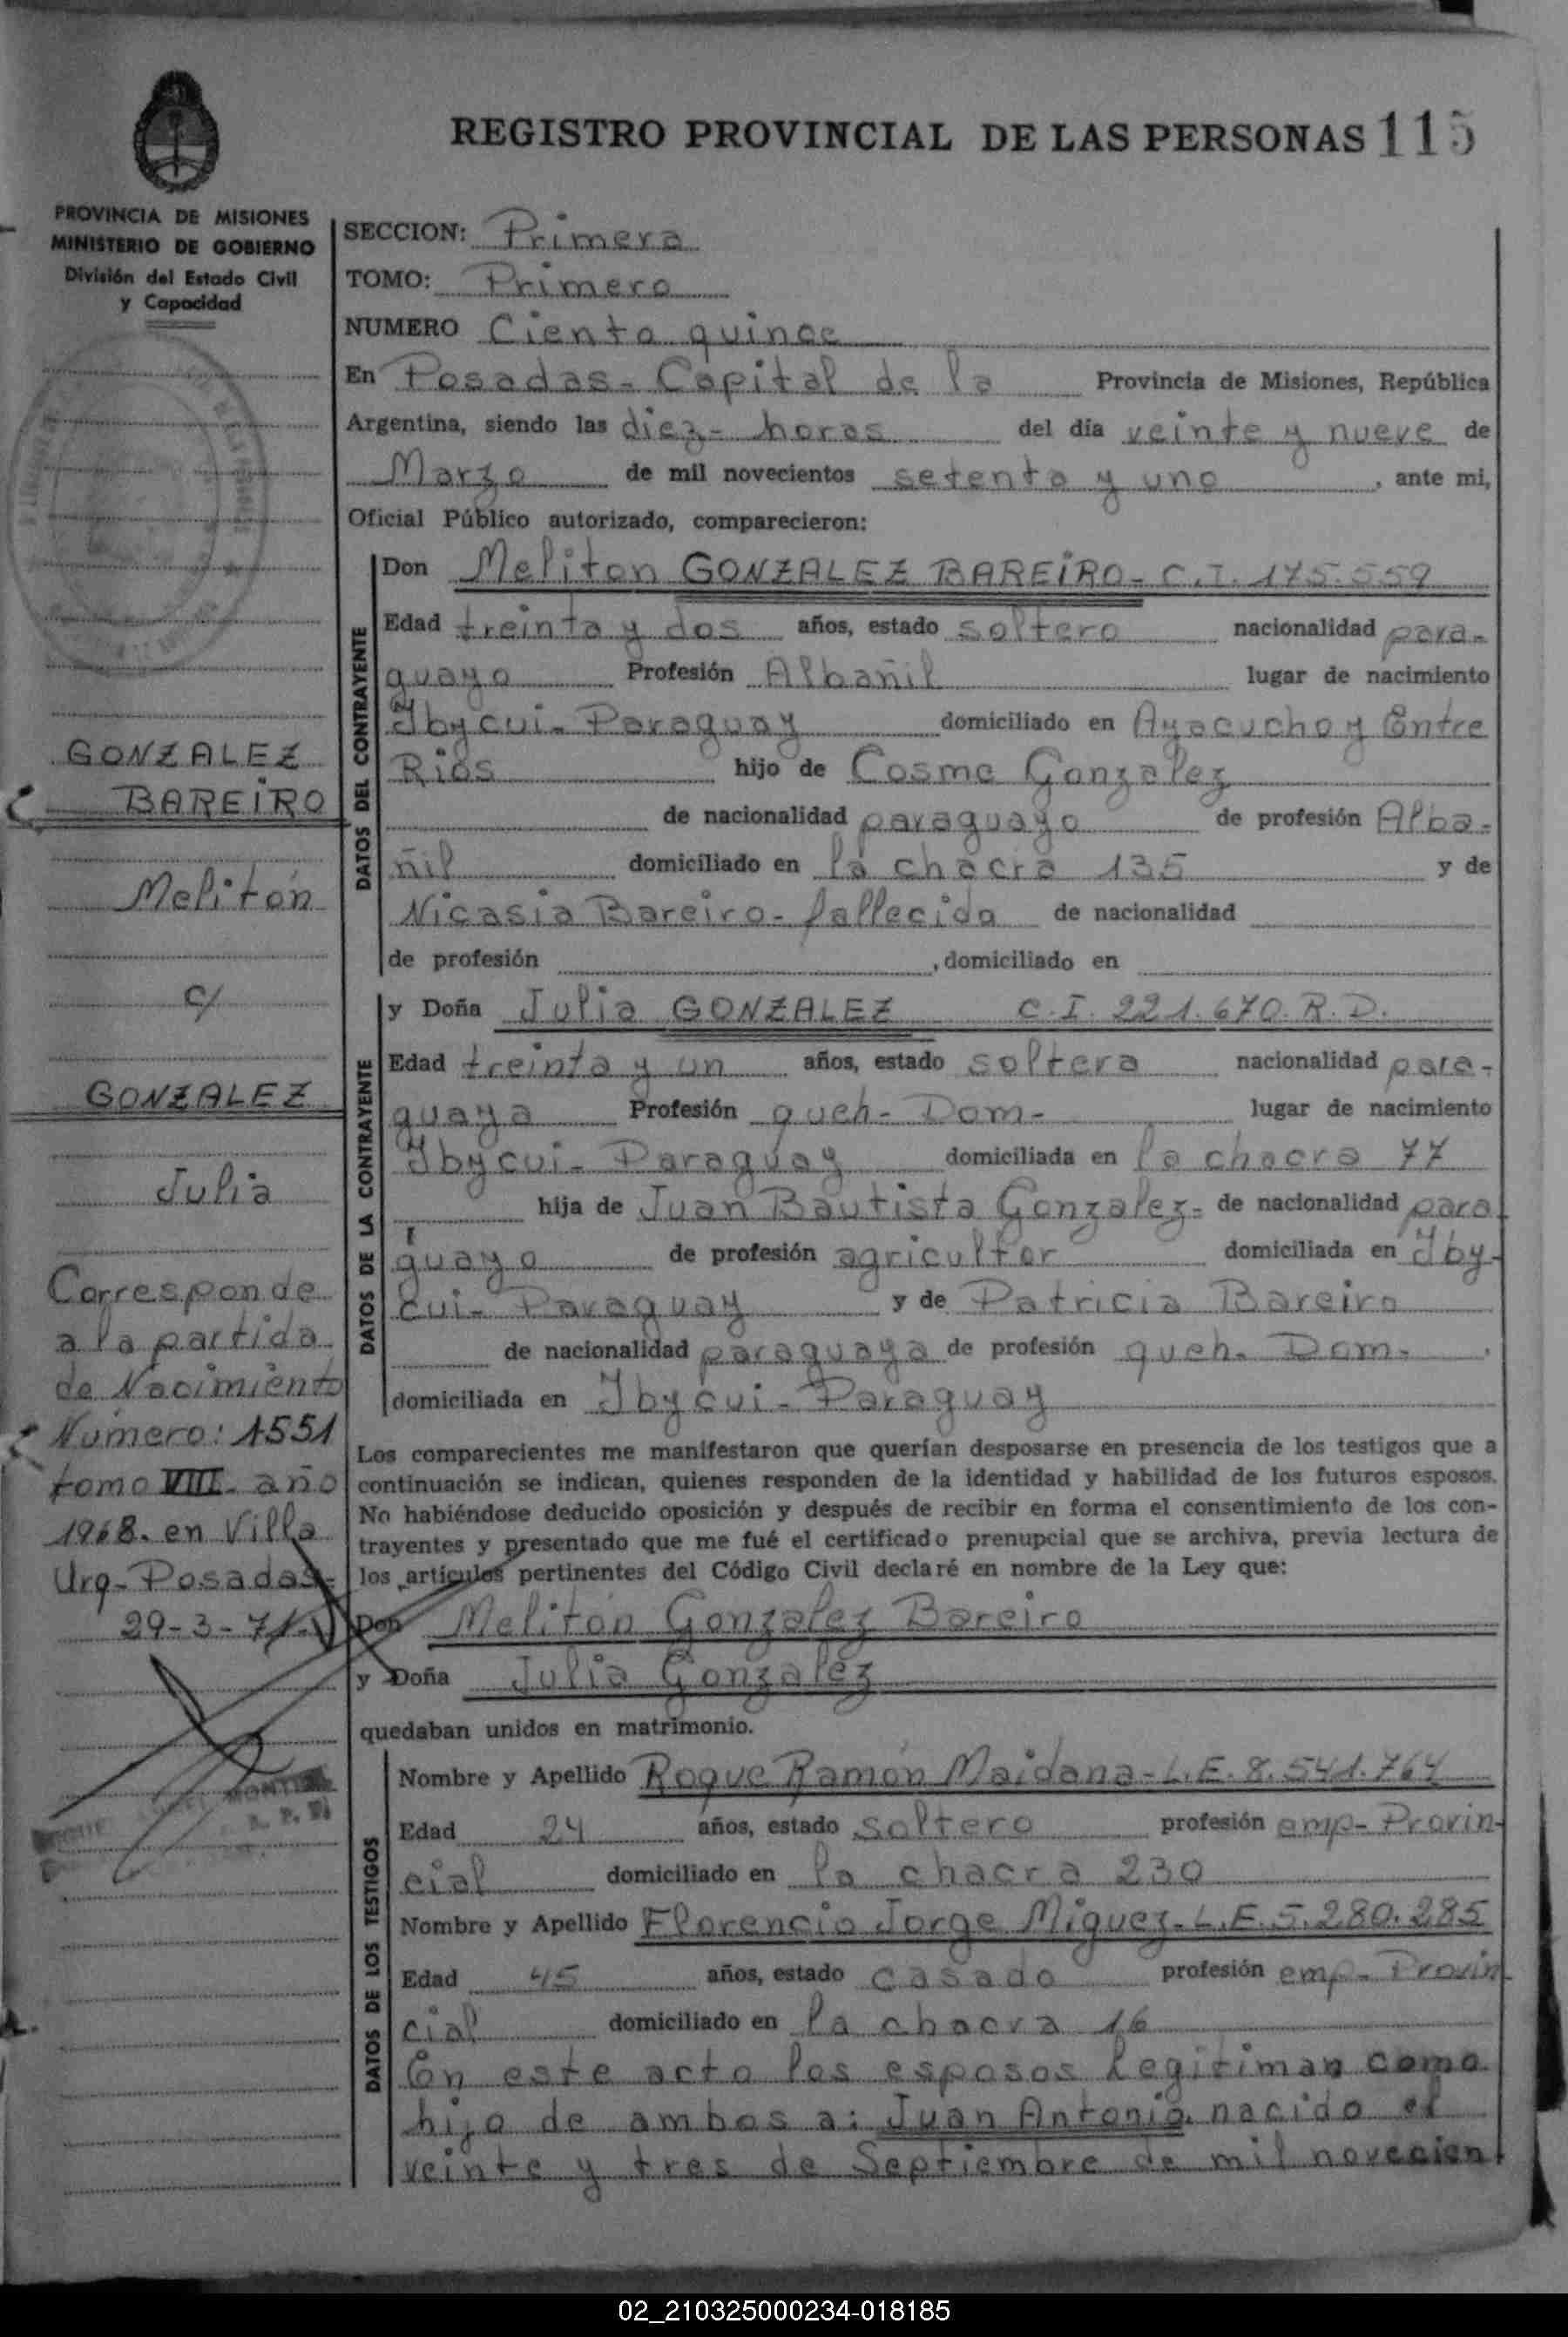 REGISTRO PROVINCIAL DE LAS PERSONAS 115
PROVINCIA DE MISIONES
MINISTERIO DE GOBIERNO
División del Estado Civil
y Capacidad
GONZALEZ
BAREIRO
Melitón
c/
GONZALEZ
Julia
Corresponde
a la partida
de Nacimiento
Número: 1551
tomo VIII - año
1968. en Villa
Urq- Posadas-
29-3-71-
SECCION: Primera
TOMO: Primero
NUMERO Ciento quince
En Posadas- Capital de la Provincia de Misiones, República
Argentina, siendo las diez- horas del día veinte y nueve de
Marzo de mil novecientos setenta y uno, ante mi,
Oficial Público autorizado, comparecieron:
DATOS DEL CONTRAYENTE
Don Meliton GONZALEZ BAREIRO- C.I. 175.559
Edad treinta y dos años, estado soltero nacionalidad para-
guayo Profesión Albañil lugar de nacimiento
Ybycui- Paraguay domiciliado en Ayacucho y Entre
Rios hijo de Cosme Gonzalez
de nacionalidad paraguayo de profesión Alba-
ñil domiciliado en la chacra 135 y de
Nicasia Bareiro- fallecida de nacionalidad
de profesión , domiciliado en
DATOS DE LA CONTRAYENTE
y Doña Julia GONZALEZ C.I. 221.670. R.D.
Edad treinta y un años, estado soltera nacionalidad para-
guaya Profesión queh- Dom- lugar de nacimiento
Ybycui- Paraguay domiciliada en la chacra 77
hija de Juan Bautista Gonzalez- de nacionalidad para
guayo de profesión agricultor domiciliada en Yby-
cui- Paraguay y de Patricia Bareiro
de nacionalidad paraguaya de profesión queh- Dom-
domiciliada en Ybycui- Paraguay
Los comparecientes me manifestaron que querían desposarse en presencia de los testigos que a
continuación se indican, quienes responden de la identidad y habilidad de los futuros esposos.
No habiéndose deducido oposición y después de recibir en forma el consentimiento de los con-
trayentes y presentado que me fué el certificado prenupcial que se archiva, previa lectura de
los artículos pertinentes del Código Civil declaré en nombre de la Ley que:
Don Melitón Gonzalez Bareiro
y Doña Julia Gonzalez
quedaban unidos en matrimonio.
DATOS DE LOS TESTIGOS
Nombre y Apellido Roque Ramón Maidana- L.E. 8.541.764
Edad 24 años, estado soltero profesión emp- Provin-
cial domiciliado en la chacra 230
Nombre y Apellido Florencio Jorge Miguez- L.E. 5.280.285
Edad 45 años, estado casado profesión emp- Provin
cial domiciliado en la chacra 16
En este acto los esposos legitiman como
hijo de ambos a: Juan Antonio, nacido el
veinte y tres de Septiembre de mil novecien
02_210325000234-018185